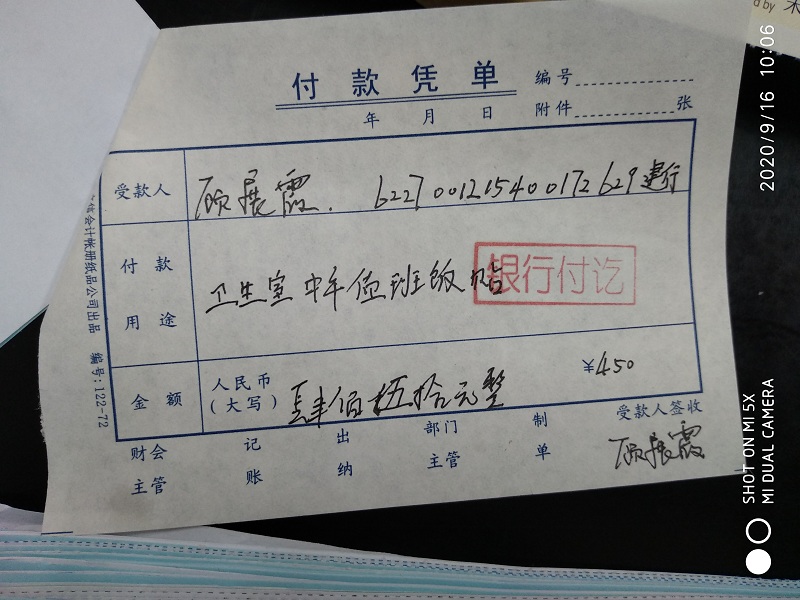 付款凭单
编号
年 月 日
附件 张
受款人 顾展霞. 6227 0012 1540 0172 629 建行
付款用途 卫生室中午值班饭贴
银行付讫
金额 人民币（大写） 肆佰伍拾元整 ¥450
受款人签收
财会主管 记账 出纳 部门主管 制单
顾展霞
会计帐册纸品公司出品 编号:122-72
2020/9/16 10:06
SHOT ON MI 5X
MI DUAL CAMERA